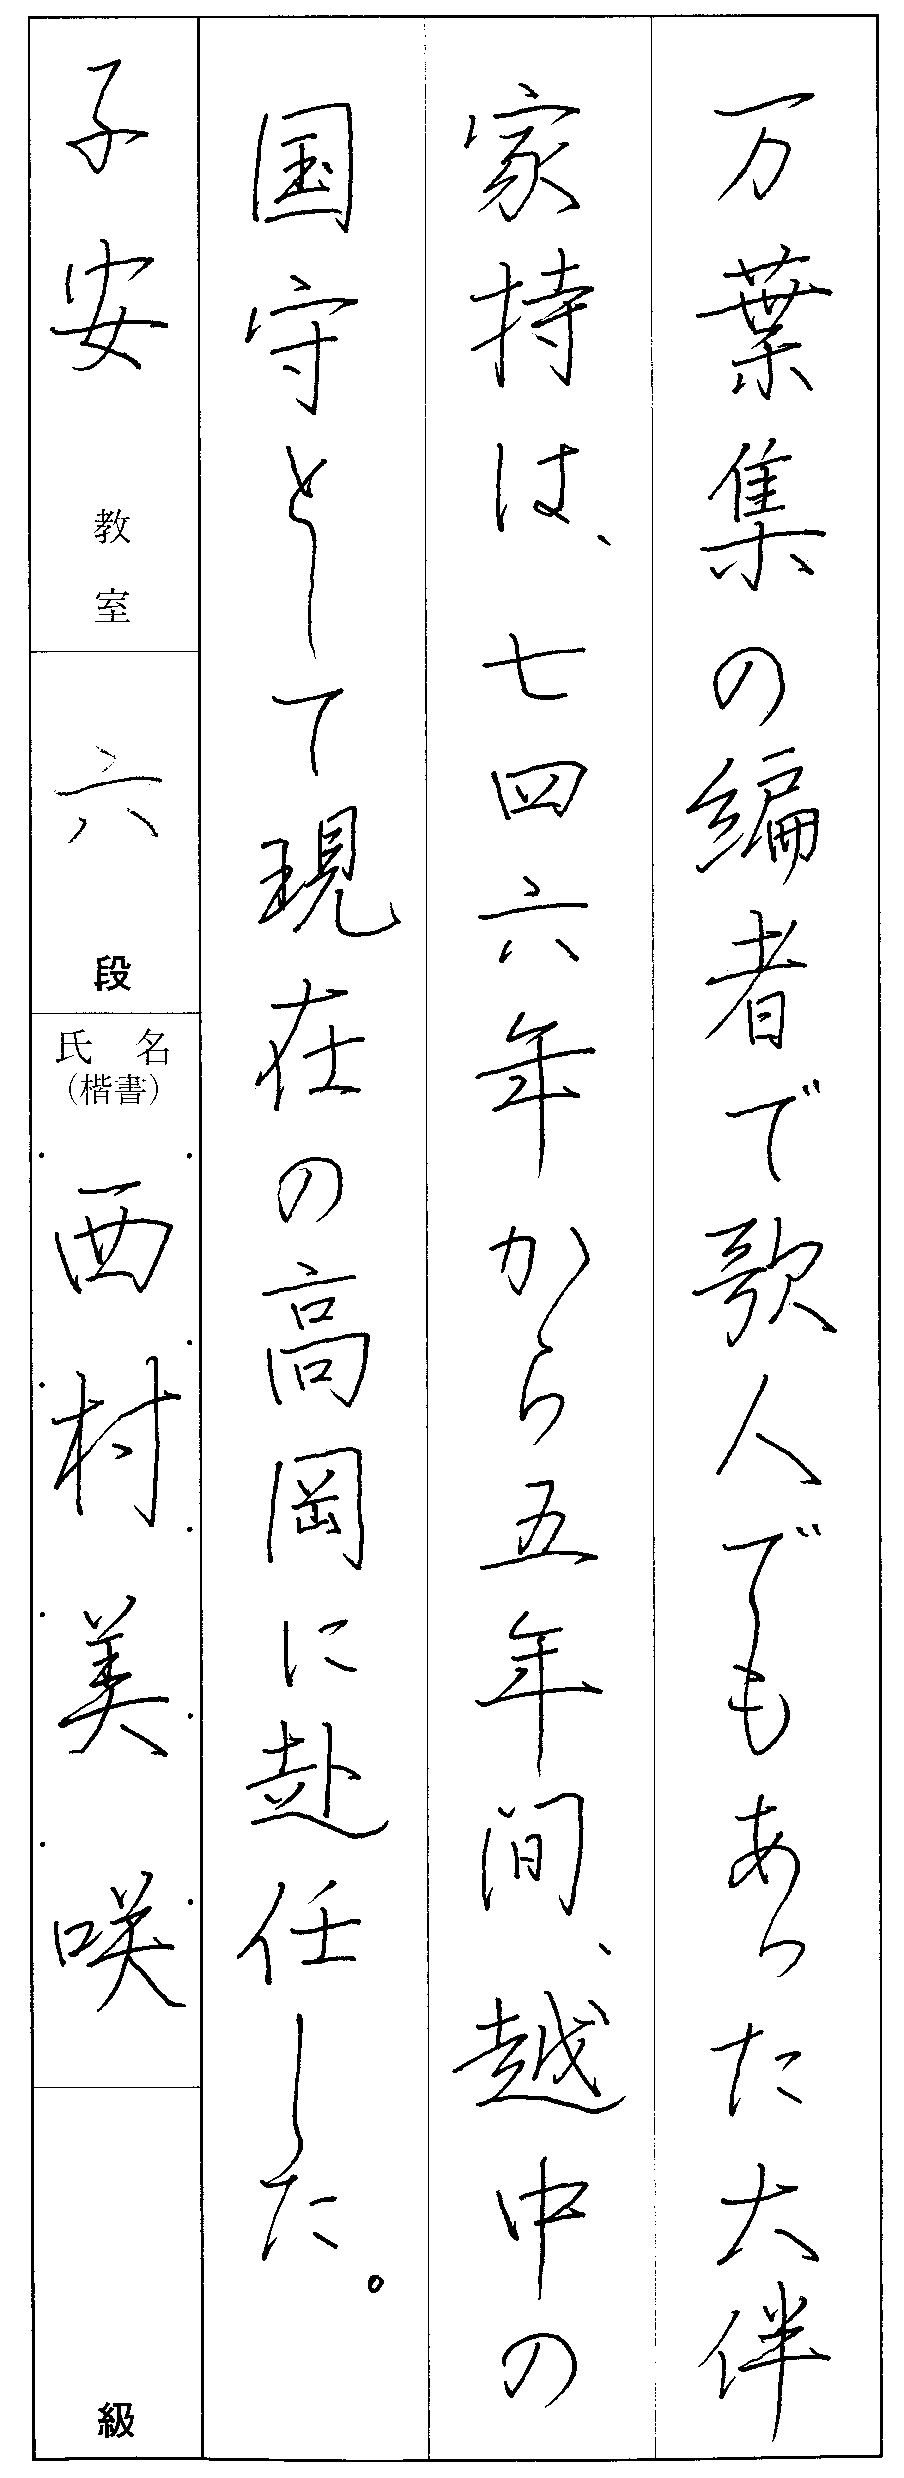 万葉集の編者で歌人でもあった大伴
家持は、七四六年から五年間、越中の
国守として現在の高岡に赴任した。
子安教室
六段
氏名
(楷書)
西村美咲
級